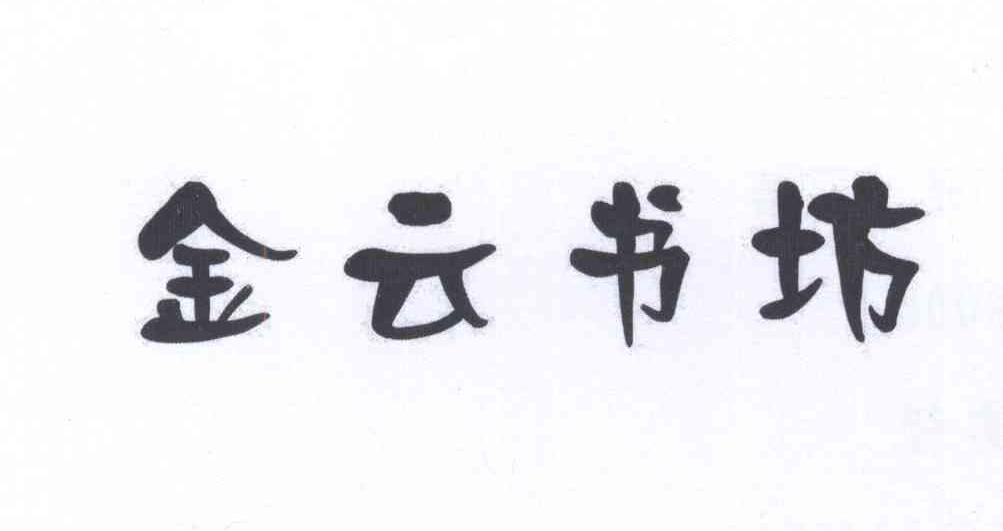 金云书坊